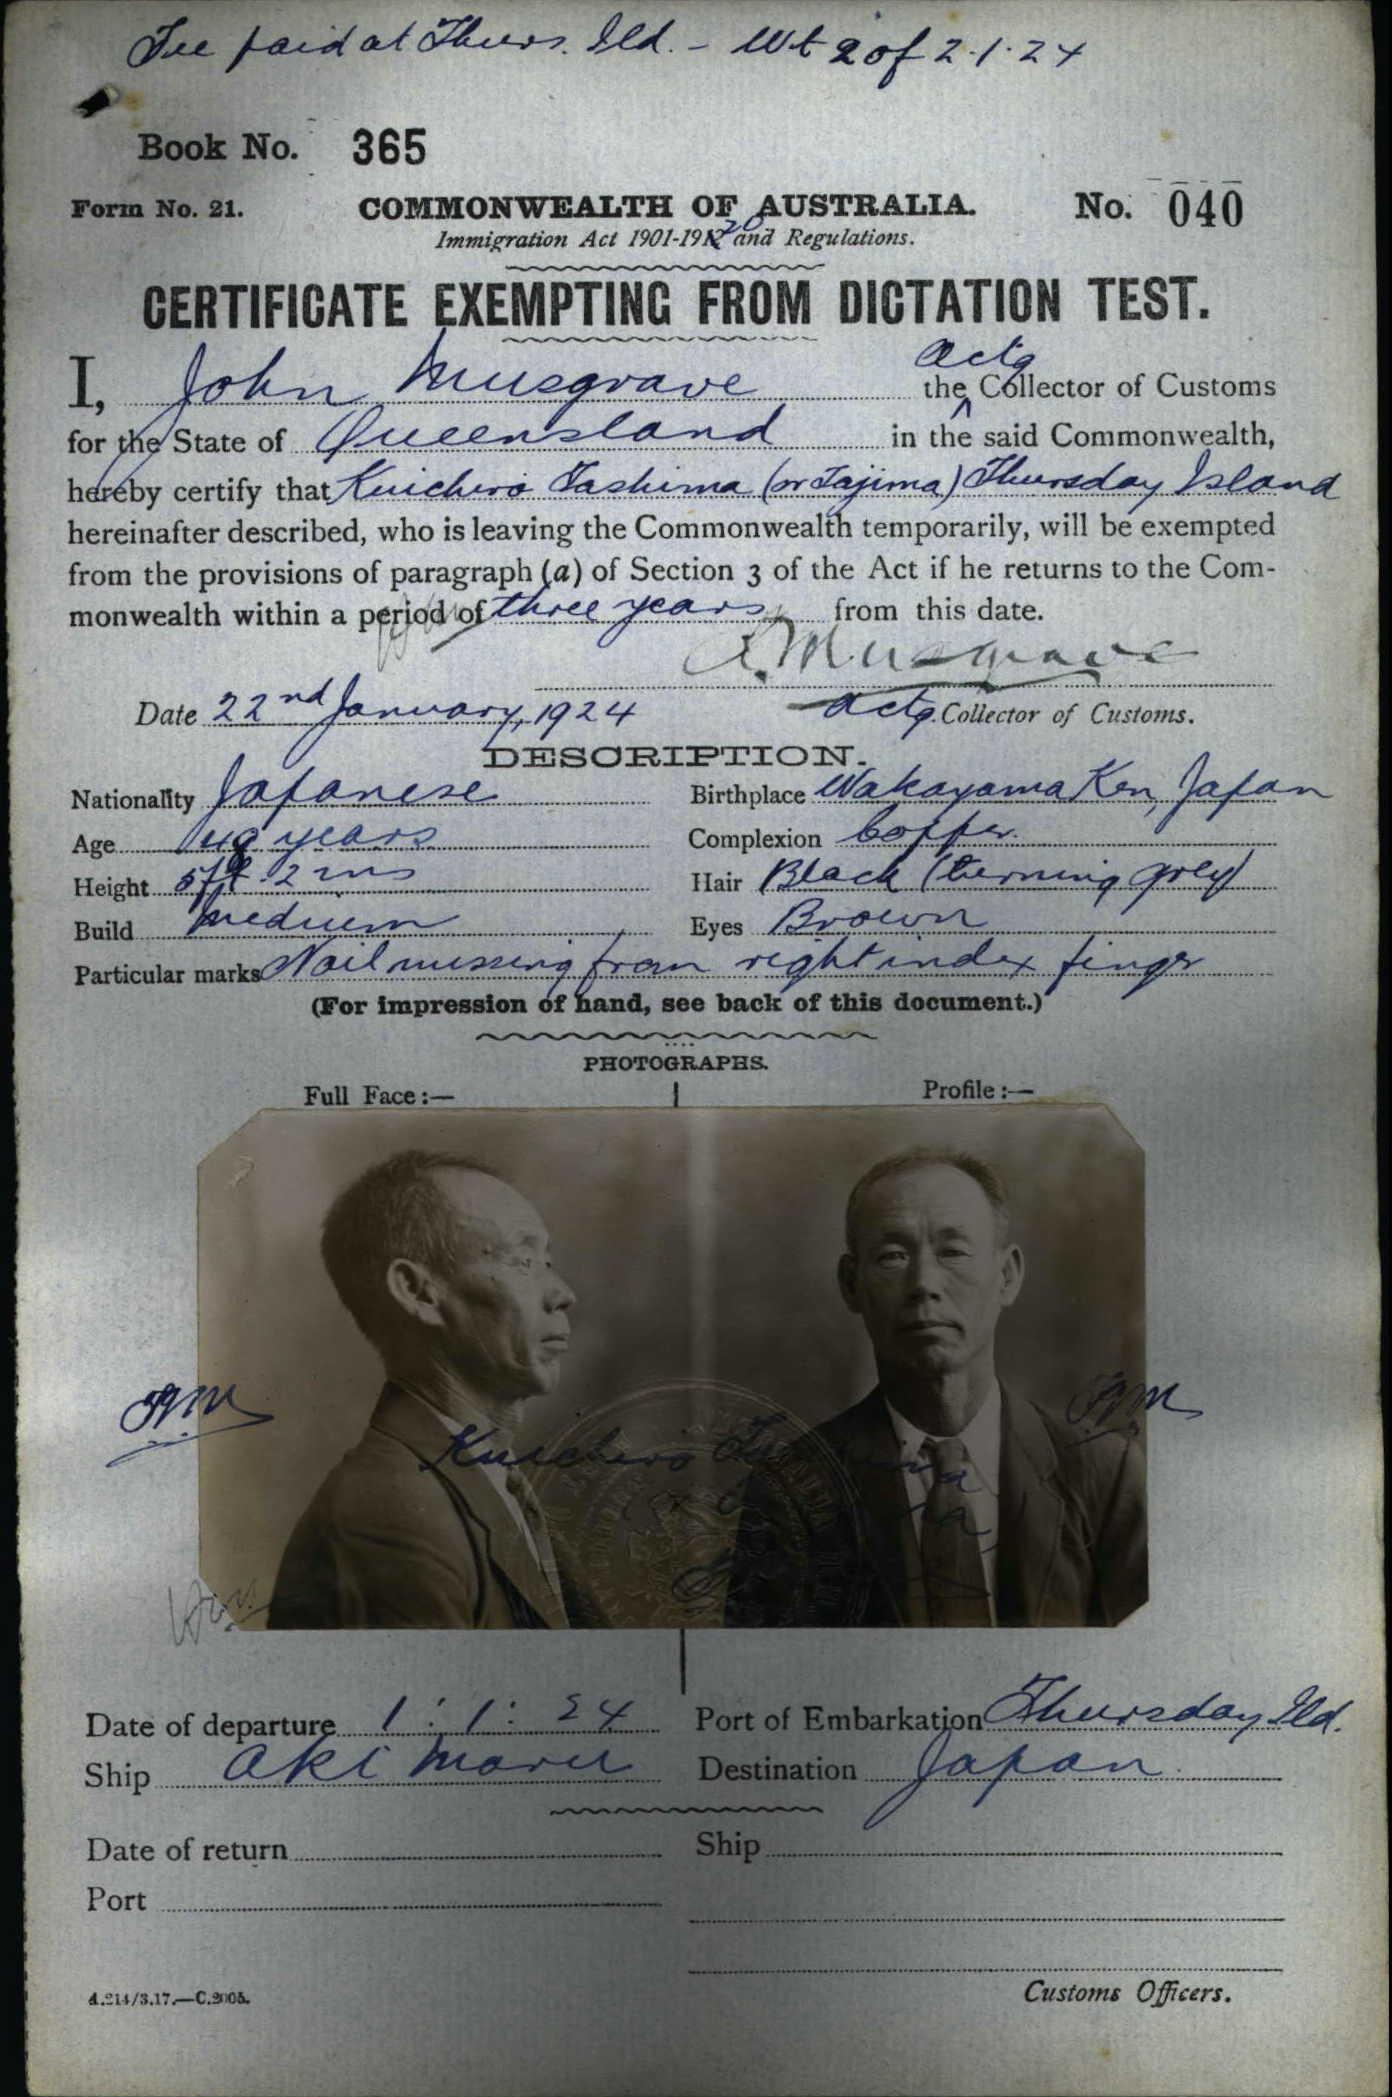 Fee paid at Thurs. Ild. - Wt 2 of 2.1.24
Book No. 365
Form No. 21. COMMONWEALTH OF AUSTRALIA. No. 040
Immigration Act 1901-1912 20 and Regulations.
CERTIFICATE EXEMPTING FROM DICTATION TEST.
I, John Musgrave the Actg Collector of Customs
for the State of Queensland in the said Commonwealth,
hereby certify that Kuichiro Tashima (or Tajima) Thursday Island
hereinafter described, who is leaving the Commonwealth temporarily, will be exempted
from the provisions of paragraph (a) of Section 3 of the Act if he returns to the Com-
monwealth within a period of three years from this date.
Musgrave
Date 22nd January, 1924 Actg. Collector of Customs.
DESCRIPTION.
Nationality Japanese Birthplace Wakayama Ken, Japan
Age 49 years Complexion Copper
Height 5 ft 2 ins Hair Black (turning grey)
Build Medium Eyes Brown
Particular marks Nail missing from right index finger
(For impression of hand, see back of this document.)
PHOTOGRAPHS.
Full Face:— Profile:—
Kuichiro
Date of departure 1 : 1 : 24 Port of Embarkation Thursday Ild.
Ship Aki Maru Destination Japan
Date of return Ship
Port
Customs Officers.
A.214/3.17.—C.2005.